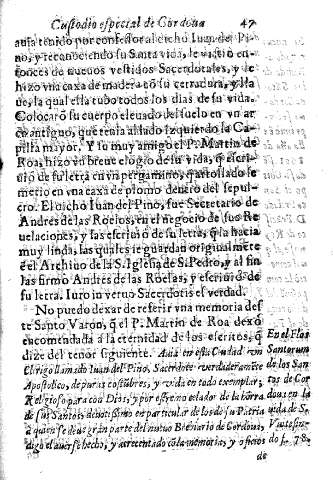 Custodio especial de Cordoua 47
auia tenido por confessor al dicho Iuan del Pi-
no, y reconociendo su Santa vida, le vistio en-
tonces de nueuos vestidos Sacerdotales, y le
hizo vna caxa de madera cõ su cerradura, y lla
ue, la qual ella tubo todos los dias de su vida.
Colocarõ su cuerpo eleuado del suelo en vn ar
co antiguo, que tenia al lado izquierdo la Ca-
pilla mayor. Y su muy amigo el P. Martin de
Roa, hizo vn breue elogio de su vida, q̃ escri-
uiò de su letra en vn pergamino, q̃ arrollado se
metio en vna caxa de plomo dentro del sepul-
cro. El dicho Iuan del Pino, fue Secretario de
Andres de las Roelas, en el negocio de sus Re
uelaciones, y las escriuiò de su letra, q̃ la hacia
muy linda, las quales se guardan original mẽte
ẽ el Archiuo de la S. Iglesia de S. Pedro, y al fin
las firmò Andres de las Roelas, y escriuiò de
su letra. Iuro in veruo Sacerdotis es verdad.
No puedo dexar de referir vna memoria des
te Santo Varon, q̃ el P. Martin de Roa dexò
encomendada a la eternidad de los escritos, q̃
dize del tenor siguiente. Auia en esta Ciudad vn
Clerigo llamado Iuan del Pino, Sacerdote verdaderamẽte
Apostolico, de puras costũbres, y vida en todo exemplar;
Religioso para con Dios, y por estremo zelador de la hõrra
de sus Santos; deuotissimo en particular de los de su Patria
a quien se deue gran parte del nueuo Breuiario de Cordoua,
digo el auerse hecho, y acrecentado cõ la memorias, y oficios
de
En el Flos
Santorum
de los San
tos de Cor
doua en la
vida de S.
do f. 78.